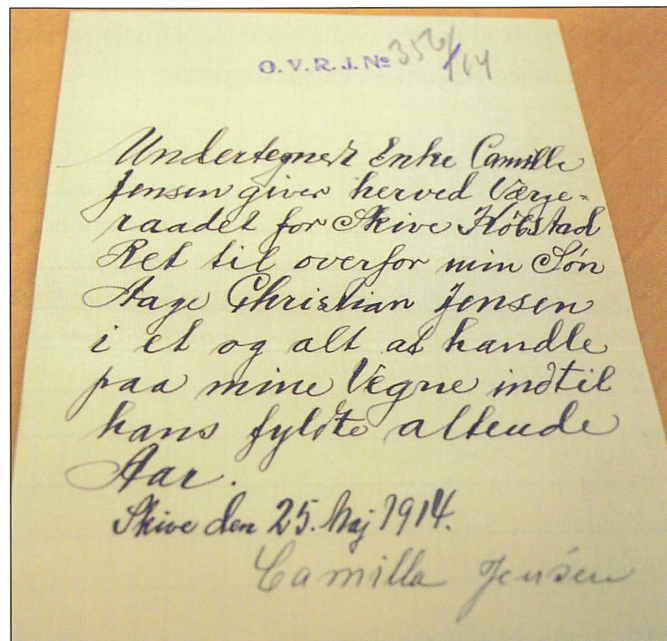 O. V. R. J. № 352/14
Undertegnede Enke Camilla
Jensen giver herved Værge-
raadet for Skive Købstad
Ret til overfor min Søn
Aage Christian Jensen
i et og alt at handle
paa mine Vegne indtil
hans fyldte attende
Aar.
Skive den 25. Maj 1914.
Camilla Jensen